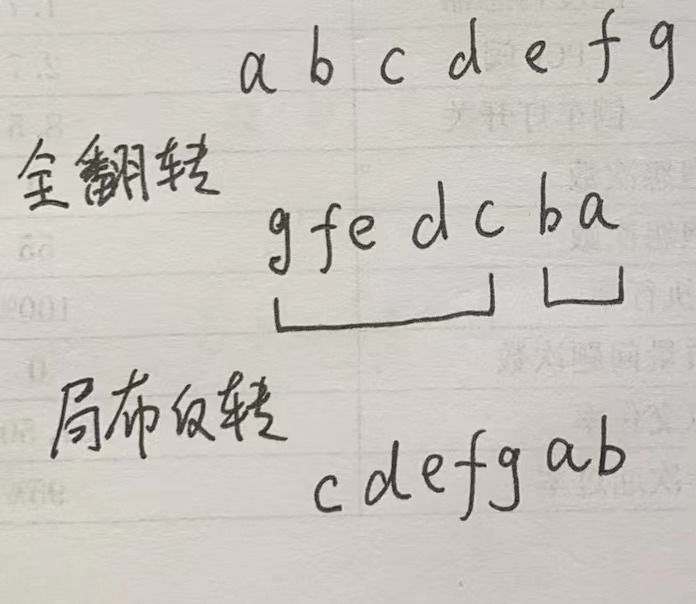 a b c d e f g
全翻转
g f e d c b a
局布反转
c d e f g a b